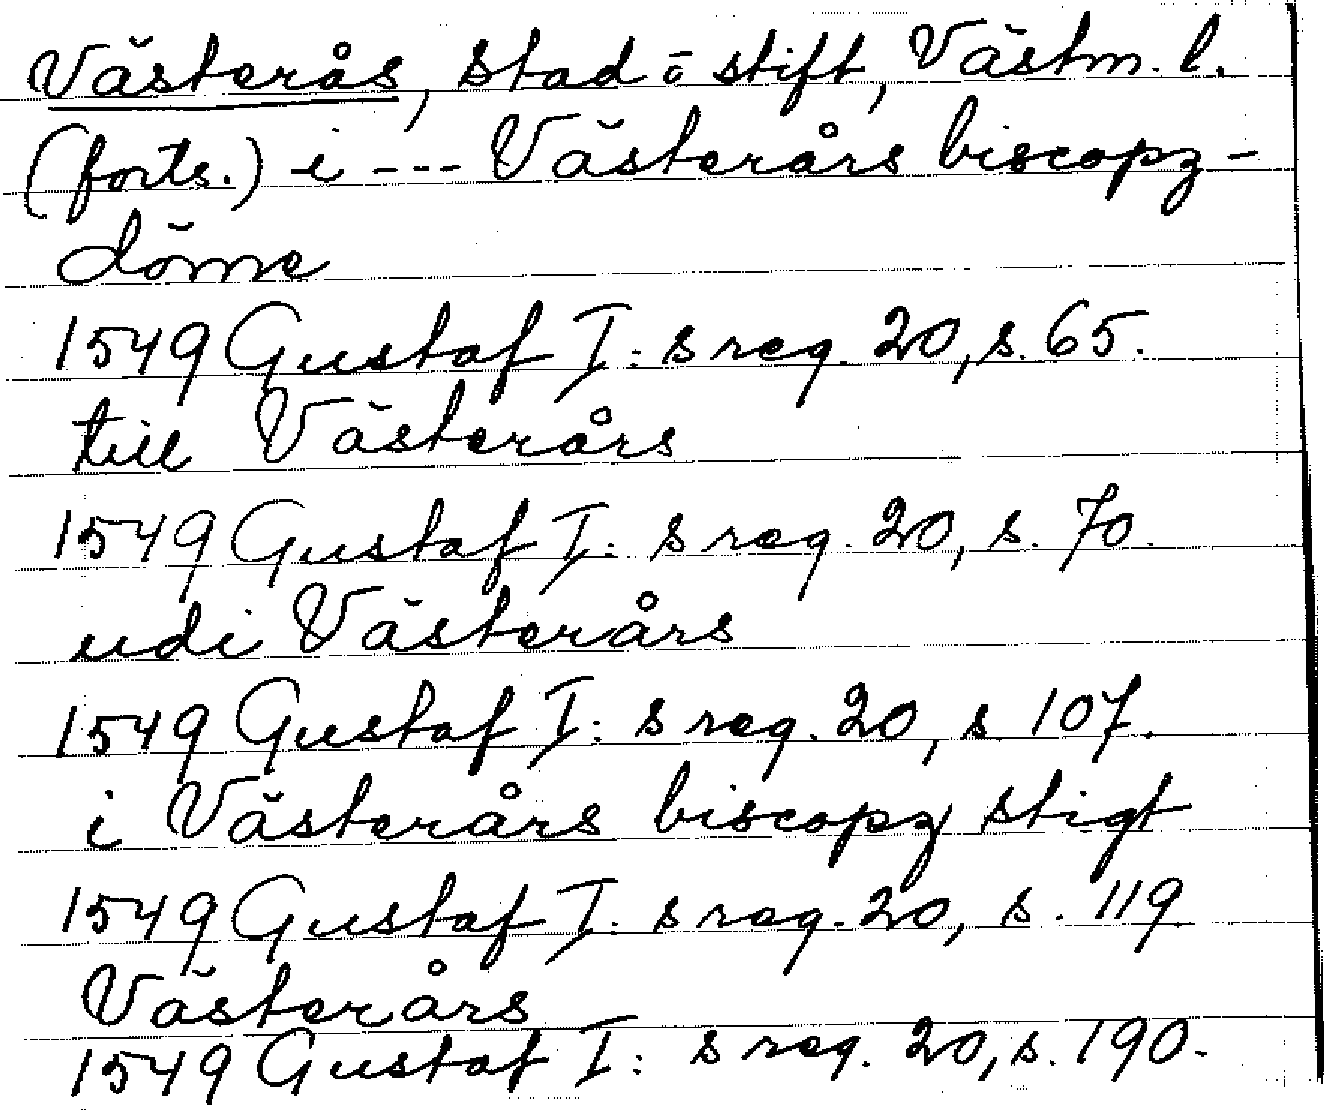 Västerås, stad o stift, Västm. l.
(forts.) i --- Västerårs biscopz-
döme
1549 Gustaf I:s reg. 20, s. 65.
till Västerårs
1549 Gustaf I:s reg. 20, s. 70.
udi Västerårs
1549 Gustaf I:s reg. 20, s 107.
i Västerårs biscopz stigt
1549 Gustaf I:s reg. 20, s. 119
Västerårs
1549 Gustaf I:s reg. 20, s. 190.